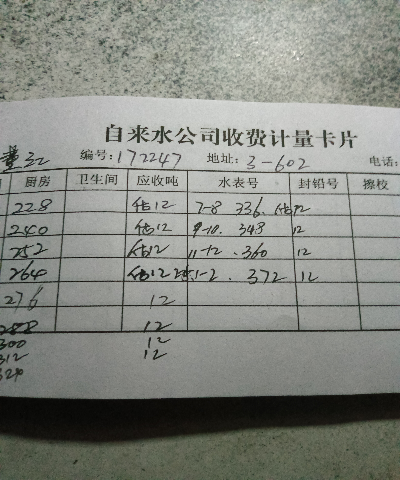 自来水公司收费计量卡片
编号:172247 地址:3-602 电话:
厨房 卫生间 应收吨 水表号 封铅号 擦校
228 估12 7-8 336. 估12
240 估12 9-10. 348 12
252 估12 11-12. 360 12
264 估12 1-2. 372 12
276 12
288 12
300 12
312 12
324